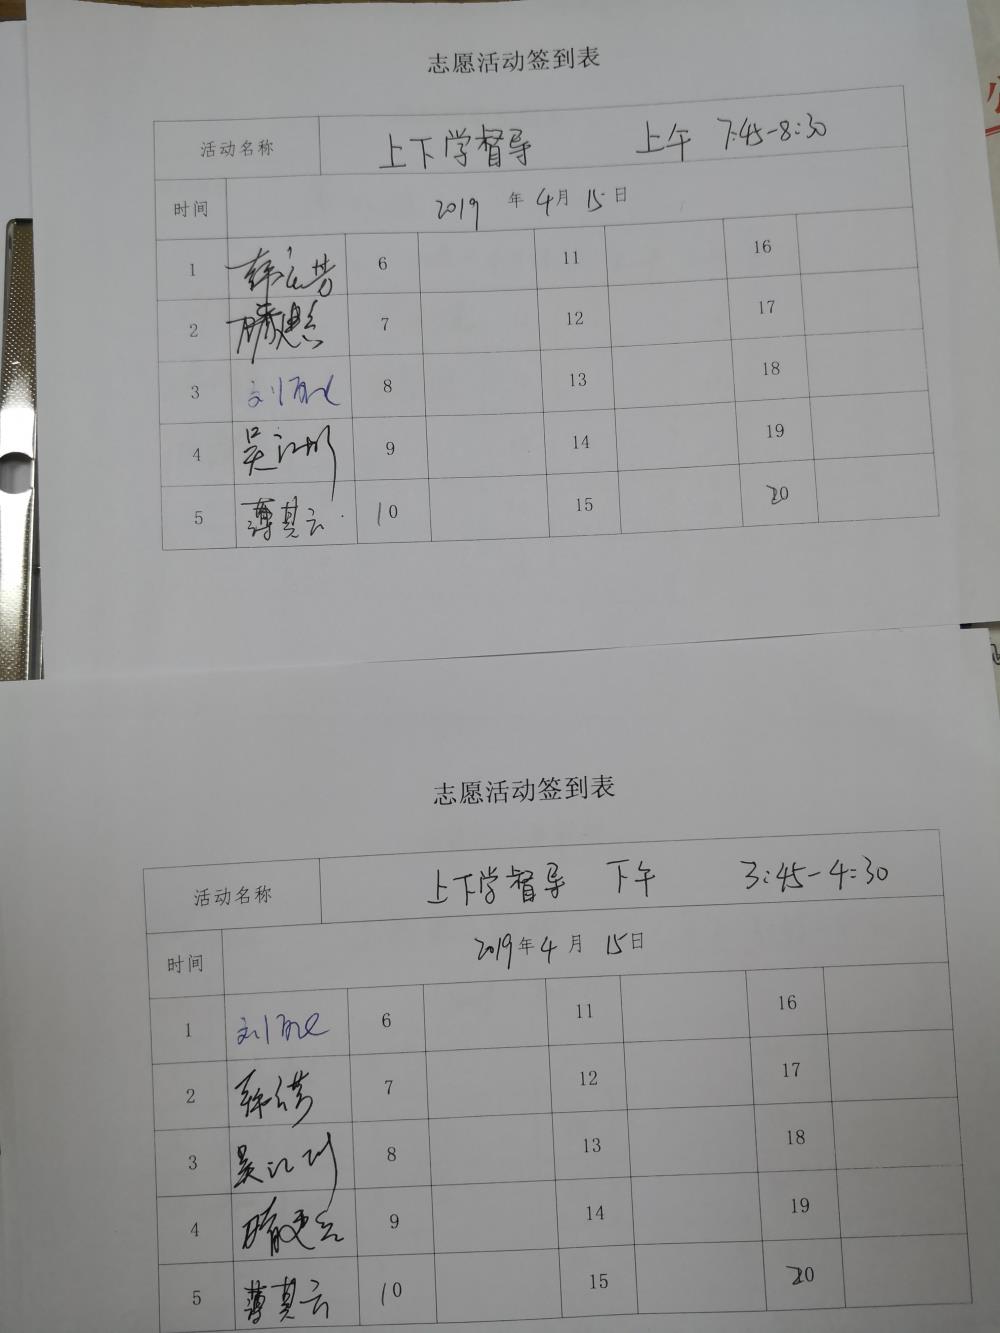 志愿活动签到表
活动名称 上下学督导 上午 7:45-8:30
时间 2019 年 4 月 15 日
1 6 11 16
2 7 12 17
3 刘 8 13 18
4 吴江 9 14 19
5 薄其云 10 15 20
志愿活动签到表
活动名称 上下学督导 下午 3:45-4:30
时间 2019 年 4 月 15 日
1 刘 6 11 16
2 7 12 17
3 吴江 8 13 18
4 9 14 19
5 薄其云 10 15 20